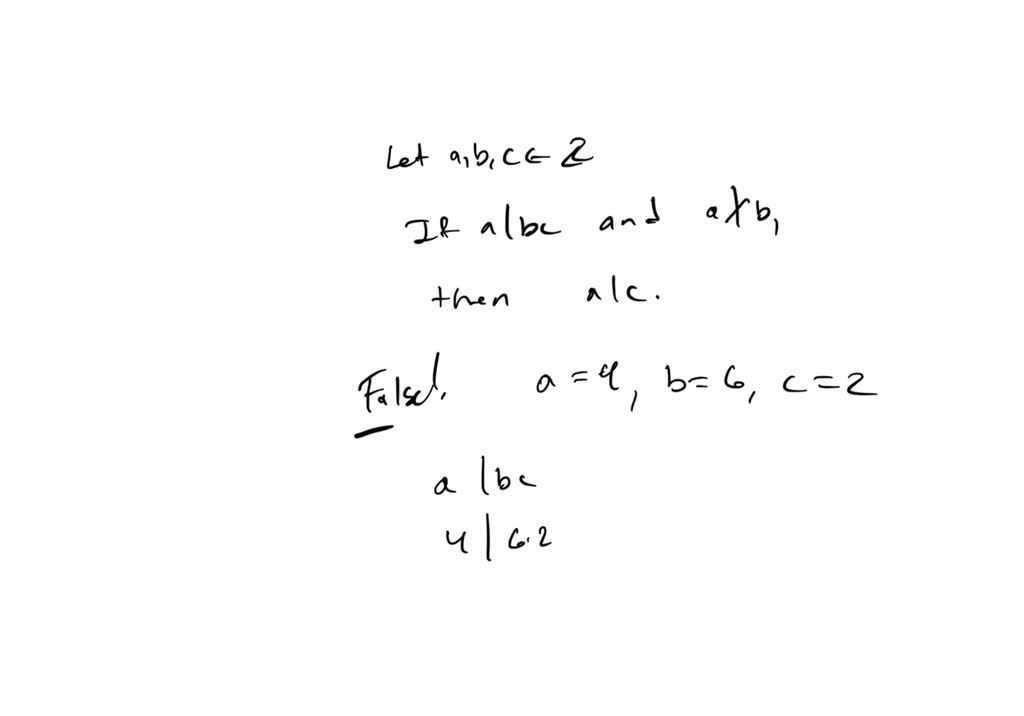 Let a,b,c ∈ ℤ
If a|bc and a∤b,
then a|c.
False!. a=4, b=6, c=2
a |bc
4 | 6·2